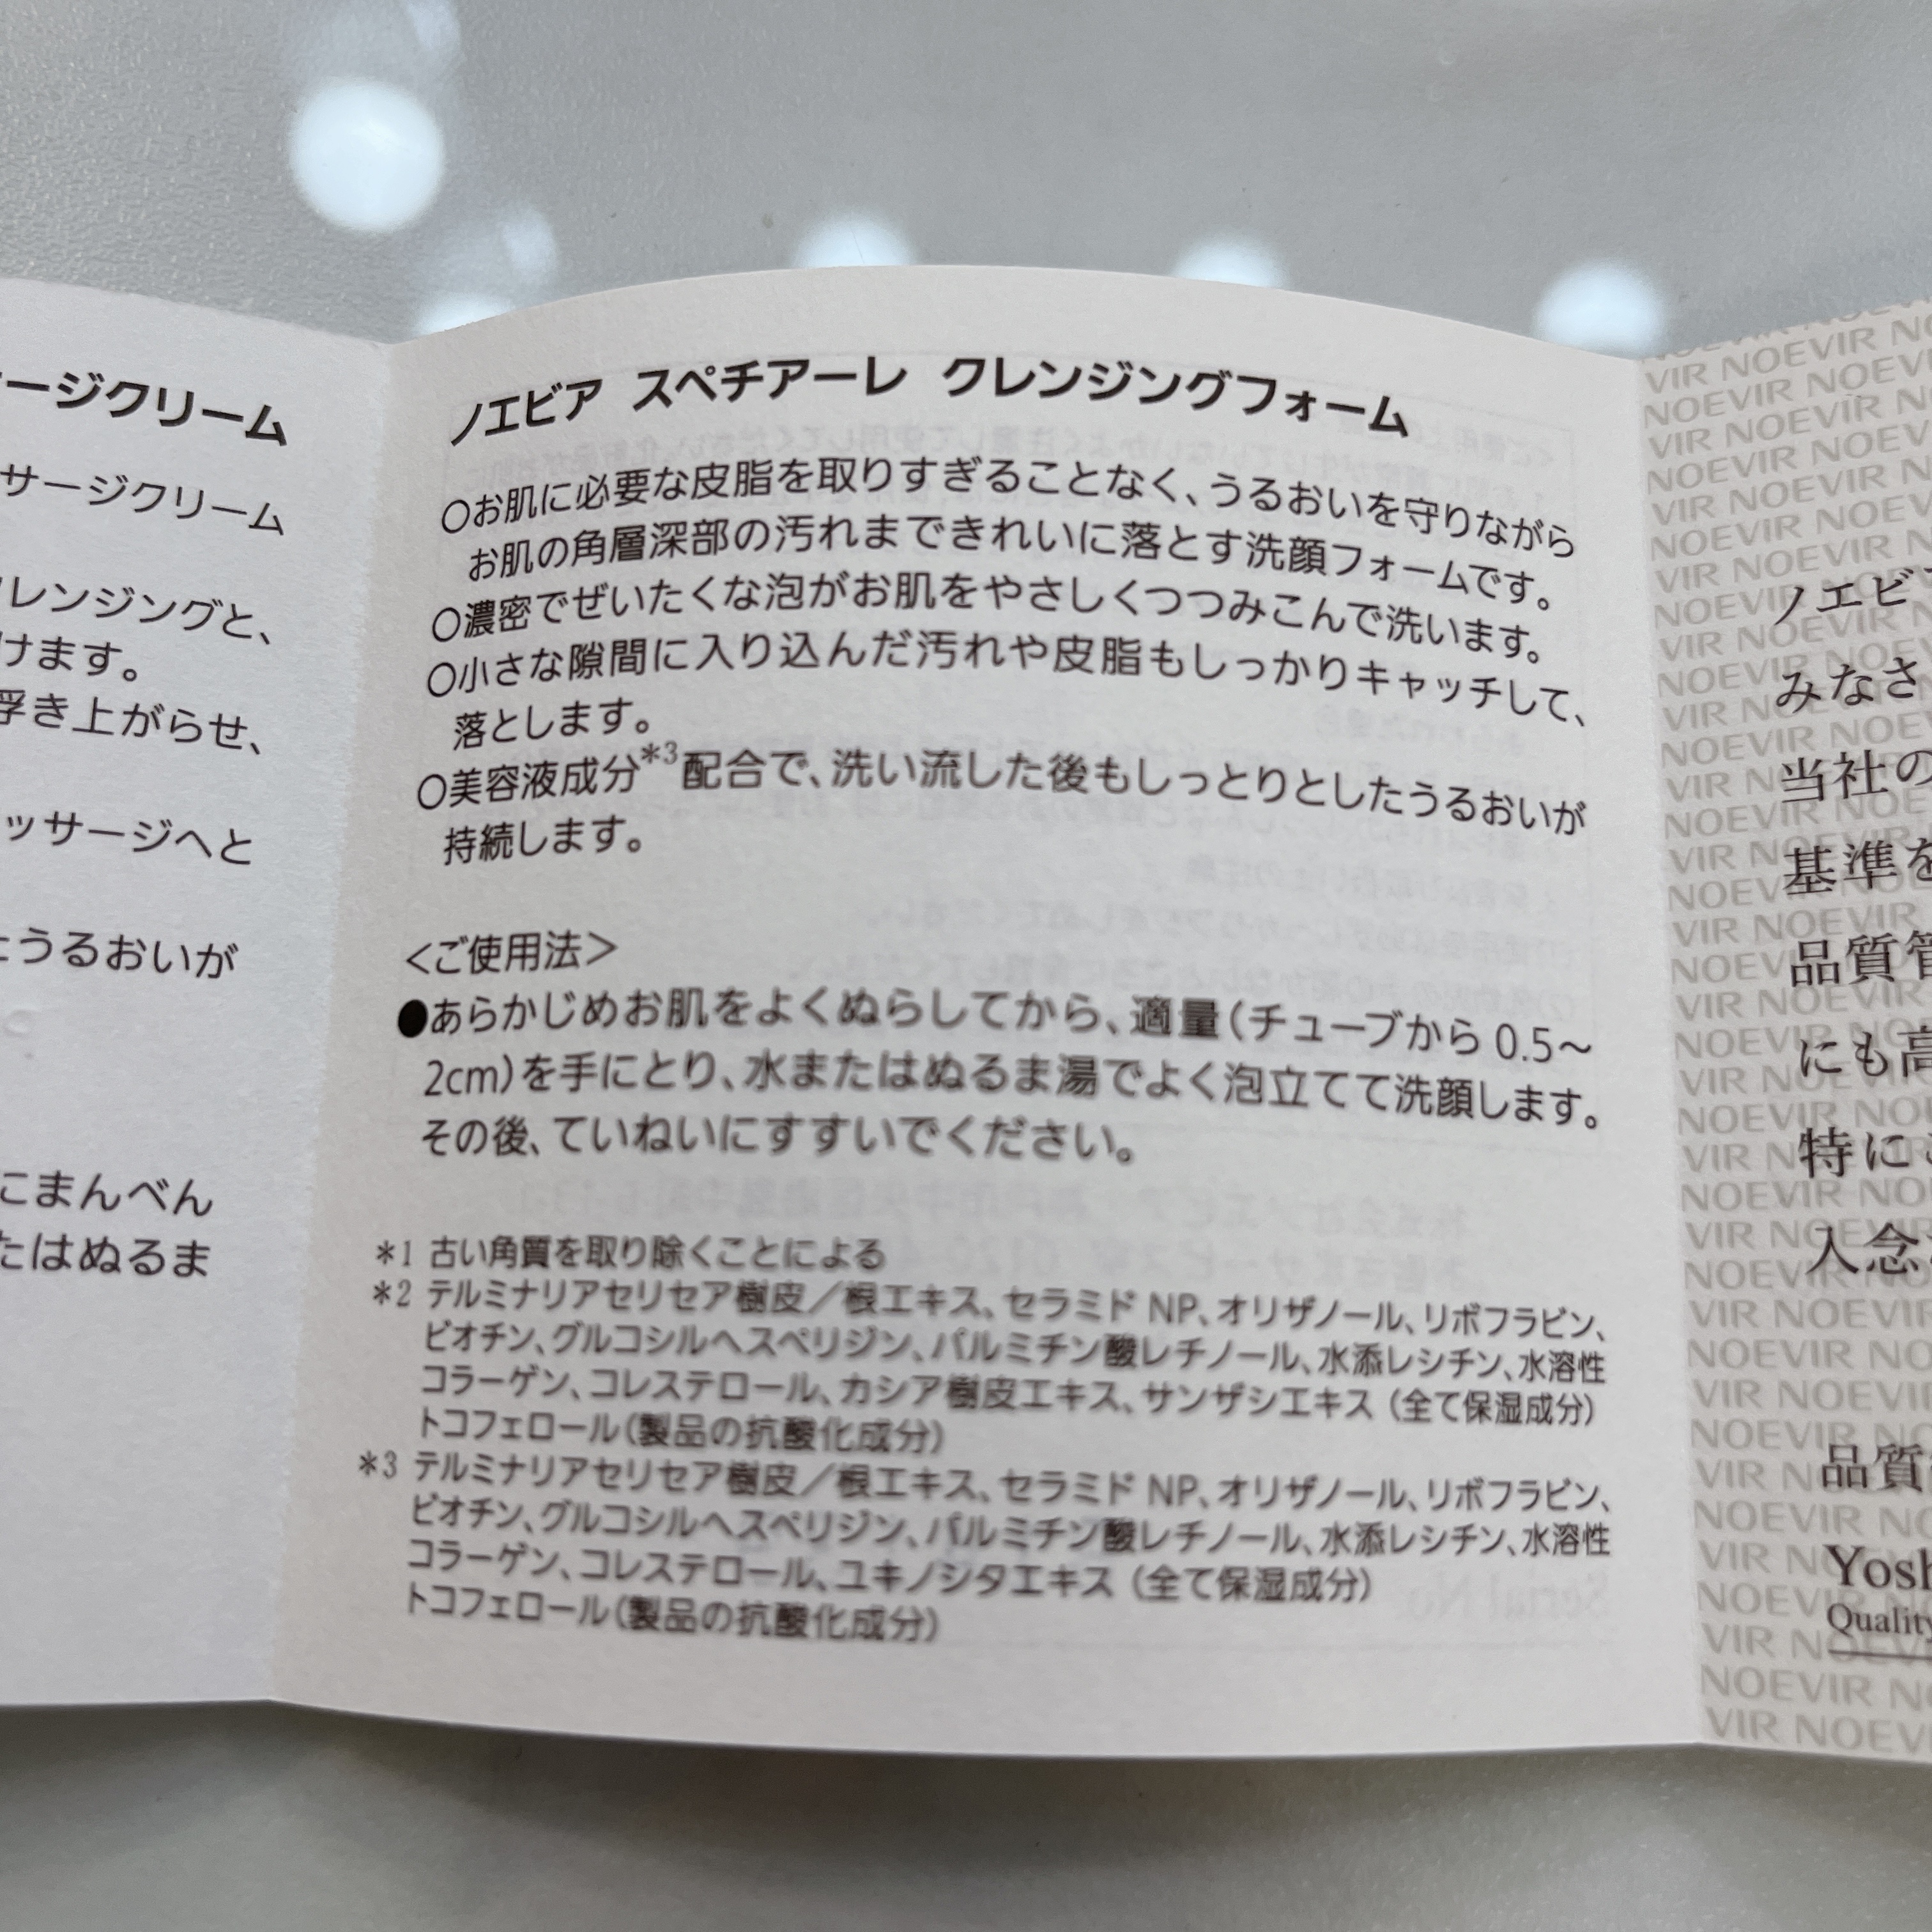 ージクリーム
サージクリーム
レンジングと、
けます。
浮き上がらせ、
ッサージへと
うるおいが
にまんべん
たはぬるま
ノエビア スペチアーレ クレンジングフォーム
○お肌に必要な皮脂を取りすぎることなく、うるおいを守りながら
お肌の角層深部の汚れまできれいに落とす洗顔フォームです。
○濃密でぜいたくな泡がお肌をやさしくつつみこんで洗います。
○小さな隙間に入り込んだ汚れや皮脂もしっかりキャッチして、
落とします。
○美容液成分*3配合で、洗い流した後もしっとりとしたうるおいが
持続します。
<ご使用法>
●あらかじめお肌をよくぬらしてから、適量(チューブから 0.5〜
2cm)を手にとり、水またはぬるま湯でよく泡立てて洗顔します。
その後、ていねいにすすいでください。
*1 古い角質を取り除くことによる
*2 テルミナリアセリセア樹皮/根エキス、セラミド NP、オリザノール、リボフラビン、
ビオチン、グルコシルヘスペリジン、パルミチン酸レチノール、水添レシチン、水溶性
コラーゲン、コレステロール、カシア樹皮エキス、サンザシエキス (全て保湿成分)
トコフェロール(製品の抗酸化成分)
*3 テルミナリアセリセア樹皮/根エキス、セラミド NP、オリザノール、リボフラビン、
ビオチン、グルコシルヘスペリジン、パルミチン酸レチノール、水添レシチン、水溶性
コラーゲン、コレステロール、ユキノシタエキス (全て保湿成分)
トコフェロール(製品の抗酸化成分)
ノエビ
みなさ
当社の
基準を
品質管
にも高
特に
入念
品質
Yosh
Quality
VIR NOEVIR NO
NOEVIR NOEVI